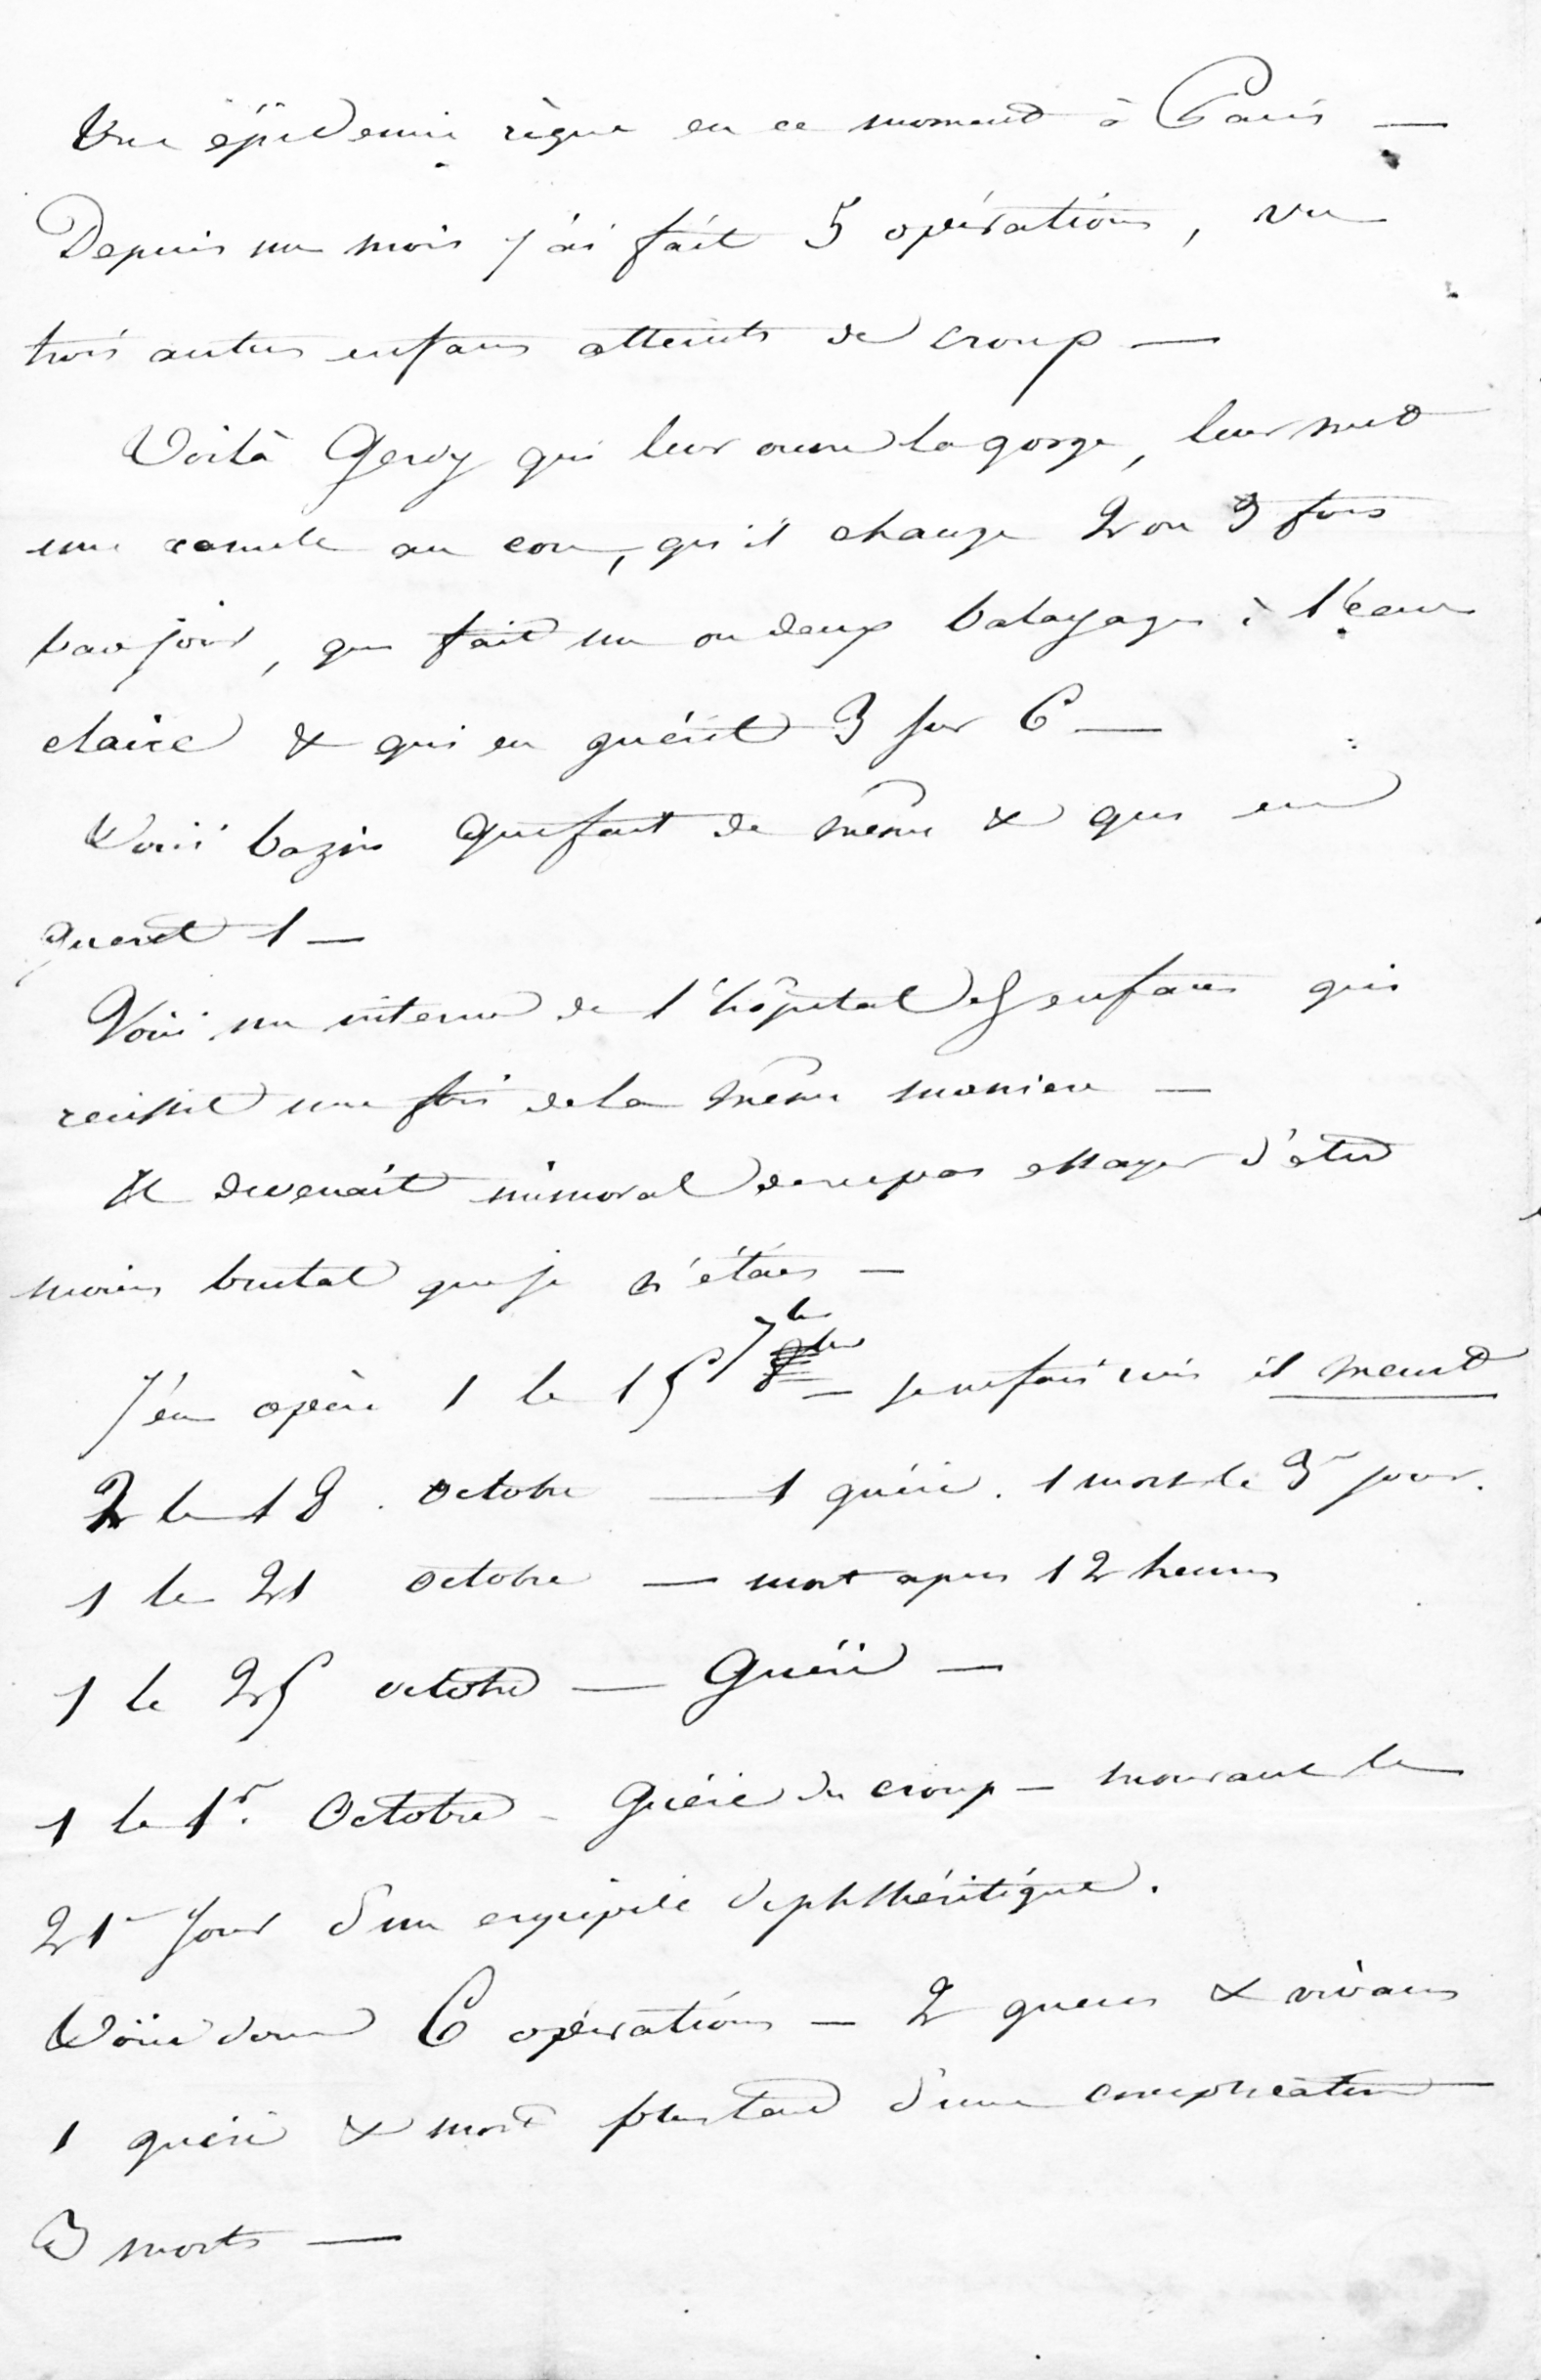 Une épidemie règne en ce moment à Paris —
Depuis un mois j'ai fait 5 opérations, vu
trois autres enfans atteints de croup —
Voilà Gerdy qui leur ouvre la gorge, leur met
une canule au cou, qu'il change 2 ou 3 fois
par jour, qui fait un ou deux balayages à l'eau
claire & qui en guérit 3 sur 6 —
Voici bazin qui fait de même & qui en
guerit 1 —
Voici un interne de l'hôpital des enfans qui
reussit une fois de la même maniere —
Il devenait immoral de ne pas essayer d'être
moins brutal que je n'étais —
J'en opère 1 le 15 7bre — je ne fais rien il meurt
2 le 18 octobre — 1 guéri. 1 mort le 3e jour.
1 le 21 octobre — mort apres 12 heures
1 le 25 octobre — Guéri —
1 le 1r. Octobre - Guéri du croup — mourant le
21e jour d'un erysipèle diphthéritique.
Voici donc 6 opérations — 2 gueris & vivans
1 guéri & mort plus tard d'une complication
3 morts —